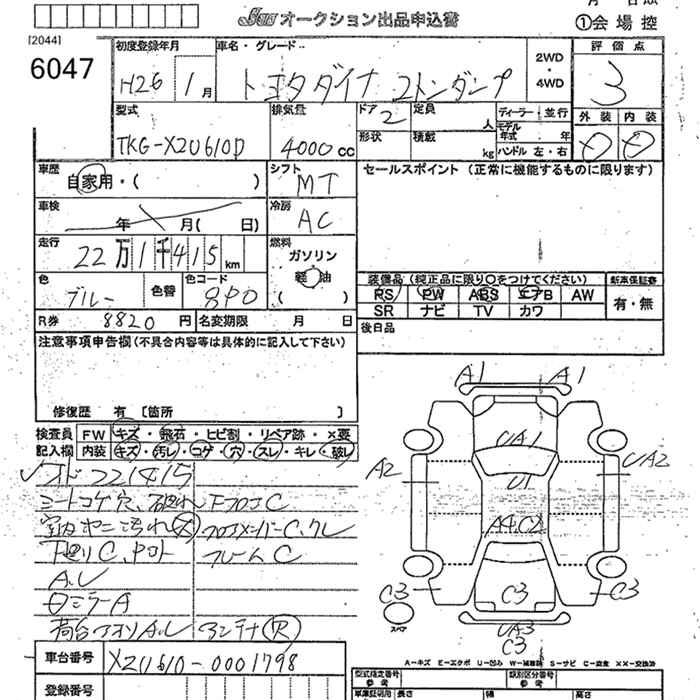 JAA オークション出品申込書
①会場控
[2044]
6047
初度登録年月
H26 1月
車名・グレード
トヨタダイナ 2トンダンプ
2WD
・
4WD
評価点
3
型式
TKG-XZU610D
排気量
4000 cc
ドア 2
定員 人
形状
積載 kg
ディーラー・並行
モデル年式 年
ハンドル 左・右
外装 内装
車歴
自家用・( )
シフト
MT
セールスポイント (正常に機能するものに限ります)
車検
年 月( 日)
冷房
AC
走行
22万1千415km
燃料
ガソリン
軽油
( )
色
ブルー
色替
色コード
8P0
装備品(純正品に限り○をつけてください)
新車保証書
PS PW ABS エアB AW
有・無
SR ナビ TV カワ
R券 8820円
名変期限 月 日
後日品
注意事項申告欄(不具合内容等は具体的に記入して下さい)
修復歴 有 [箇所 ]
検査員
記入欄
FW キズ・飛石・ヒビ割・リペア跡・×要
内装 キズ・汚レ・コゲ・穴・スレ・キレ・破レ
221415
シートコゲ穴、破れ FフロアC
室内ヤニ汚れ(大)
下廻りC、
フレームC
A.U
ミラーA
荷台アオリA.U アンテナ
A1 A1
UA1
U1
A2
UA2
A4.C2
C3
C3
C3
UA3
C3
スペア
A-キズ E-エクボ U-凹み W-補修跡 S-サビ C-腐食 XX-交換済
車台番号 XZU610-0001798
登録番号
型式指定番号
参考
類別区分番号
参考
長さ
幅
高さ